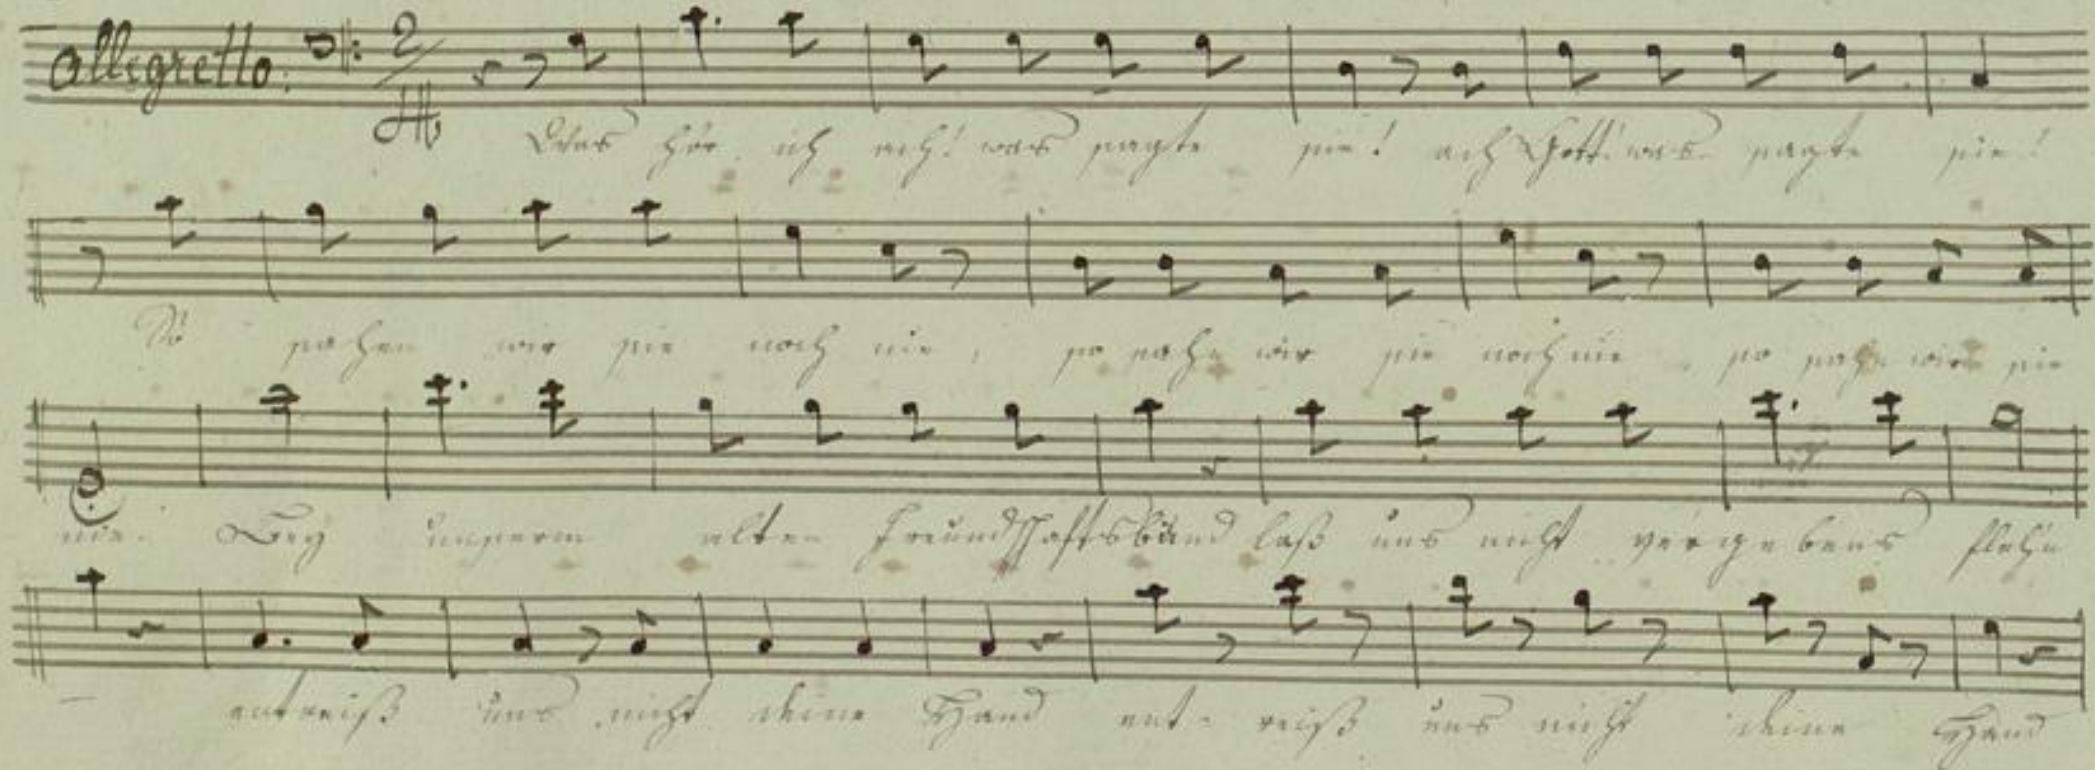 Allegretto. 2/4
Was hör ich ach! was sagte sie! ach Gott! was sagte sie!
So sahen wir sie noch nie, so sah'n wir sie noch nie, so sah'n wir sie
nie. Bey unserm alten Freundschaftsband laß uns nicht vergebens flehn
entreiß uns nicht deine Hand ent- reiß uns nicht deine Hand